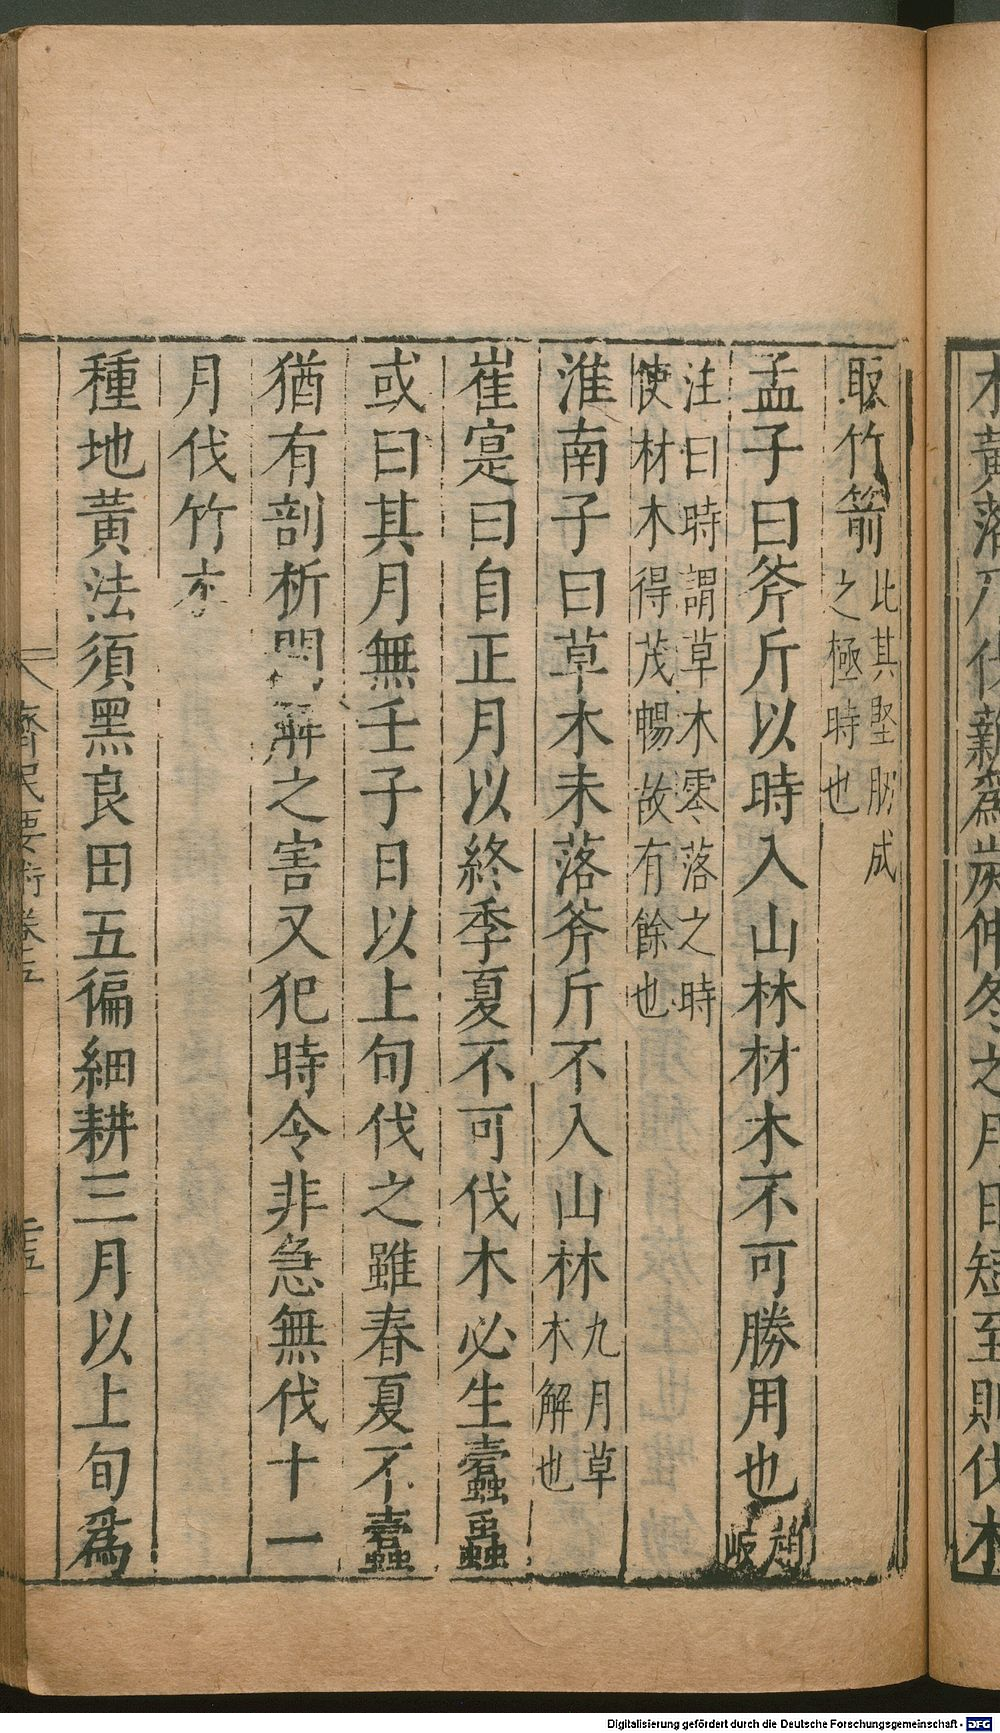 木黃落乃伐薪爲炭仲冬之月日短至則伐木
取竹箭
此其堅成
之極時也
孟子曰斧斤以時入山林材木不可勝用也
趙
岐
注曰時謂草木零落之時
使材木得茂暢故有餘也
淮南子曰草木未落斧斤不入山林
九月草
木解也
崔寔曰自正月以終季夏不可伐木必生蠹蟲
或曰其月無壬子日以上句伐之雖春夏不蠹
猶有剖析間解之害又犯時令非急無伐十一
月伐竹木
種地黃法須黑良田五徧細耕三月以上旬爲
齊民要術卷五
Digitalisierung gefördert durch die Deutsche Forschungsgemeinschaft - DFG